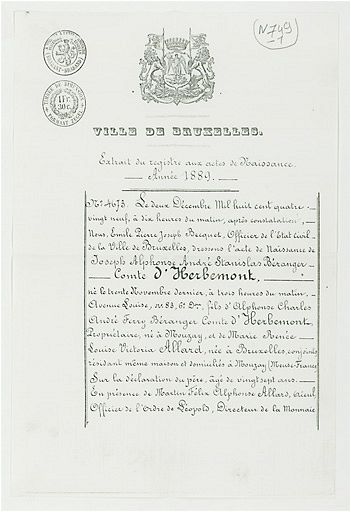 N749
-1
1Fr.
30 c.
VILLE DE BRUXELLES.
Extrait du registre aux actes de Naissance.
Année 1889.
No 4673. Le deux Décembre Mil huit cent quatre-
vingt neuf, à dix heures du matin, après constatation,
Nous, Emile Pierre Joseph Becquet, Officier de l'Etat civil
de la Ville de Bruxelles, dressons l'acte de Naissance de
Joseph Alphonse André Stanislas Béranger
Comte d'Herbemont,
né le trente Novembre dernier, à trois heures du matin,
Avenue Louise, no 83, 6e Don, fils d'Alphonse Charles
André Ferry Béranger Comte d'Herbemont,
Propriétaire, né à Mouzay, et de Marie Renée
Louise Victoria Allard, née à Bruxelles, conjoints
résidant même maison et domiciliés à Mouzay (Meuse-France)
Sur la déclaration du père, âgé de vingt sept ans.
En présence de Martin Félix Alphonse Allard, aïeul,
Officier de l'Ordre de Léopold, Directeur de la Monnaie